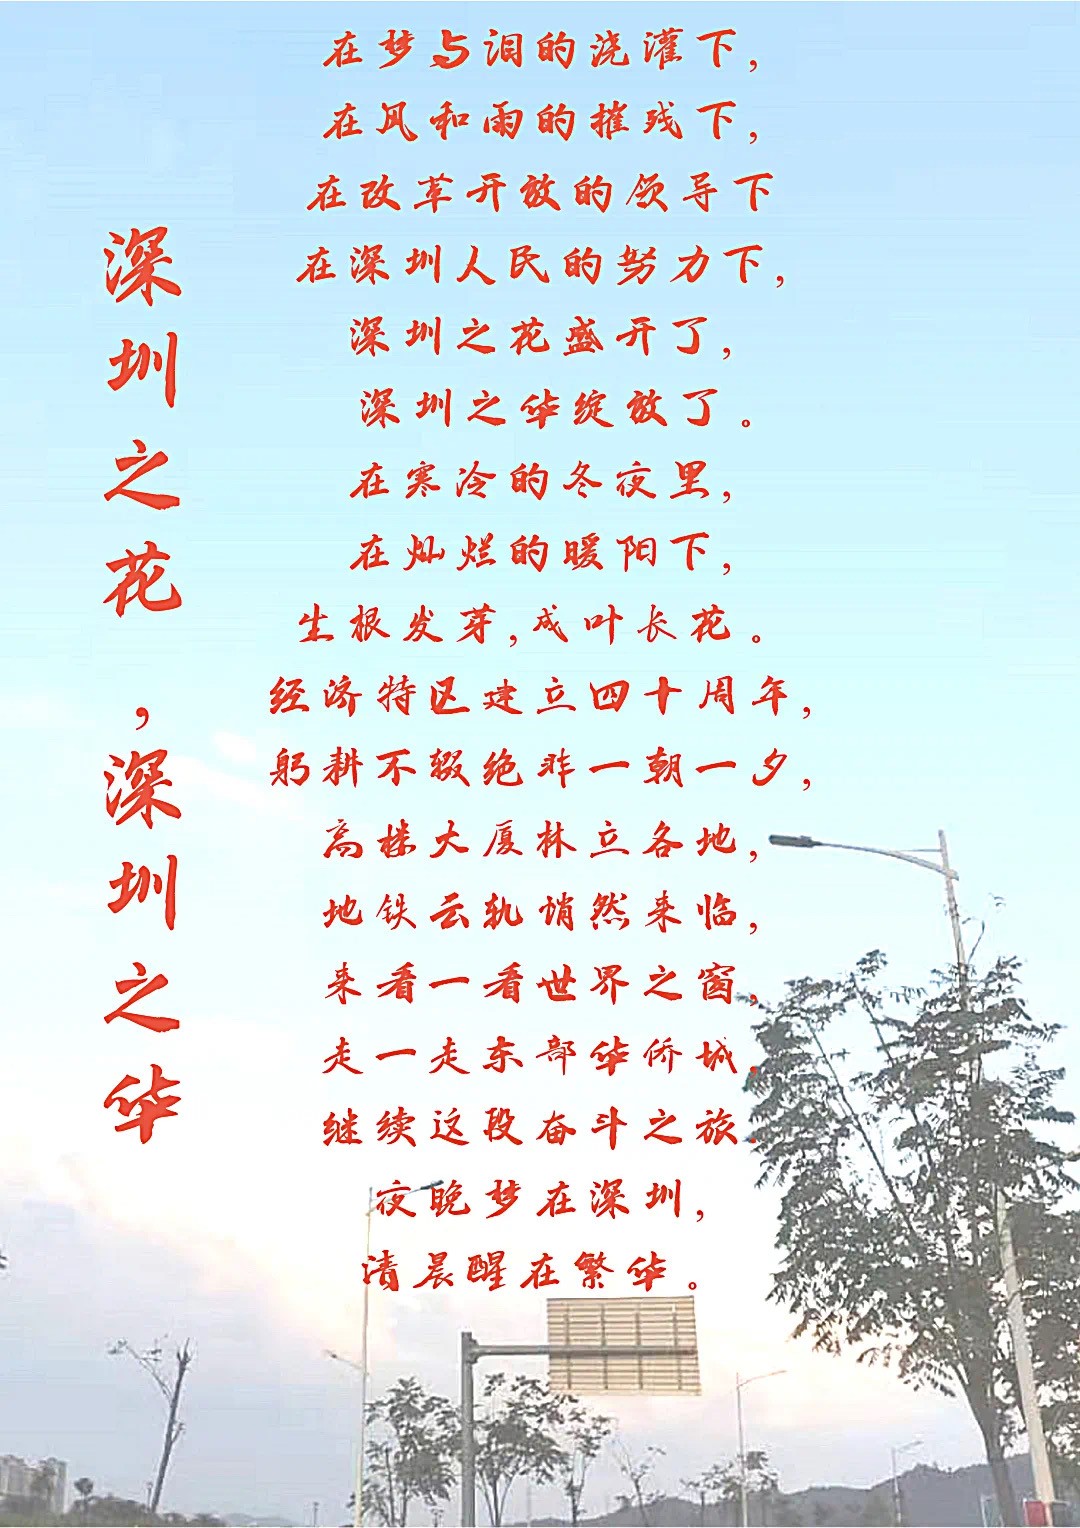 深圳之花，深圳之华
在梦与泪的浇灌下，
在风和雨的摧残下，
在改革开放的领导下
在深圳人民的努力下，
深圳之花盛开了，
深圳之华绽放了。
在寒冷的冬夜里，
在灿烂的暖阳下，
生根发芽，成叶长花。
经济特区建立四十周年，
躬耕不辍绝非一朝一夕，
高楼大厦林立各地，
地铁云轨悄然来临，
来看一看世界之窗，
走一走东部华侨城，
继续这段奋斗之旅，
夜晚梦在深圳，
清晨醒在繁华。